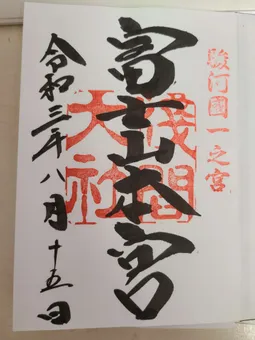 駿河國一之宮
富士山本宮
淺間大社
令和三年八月十五日